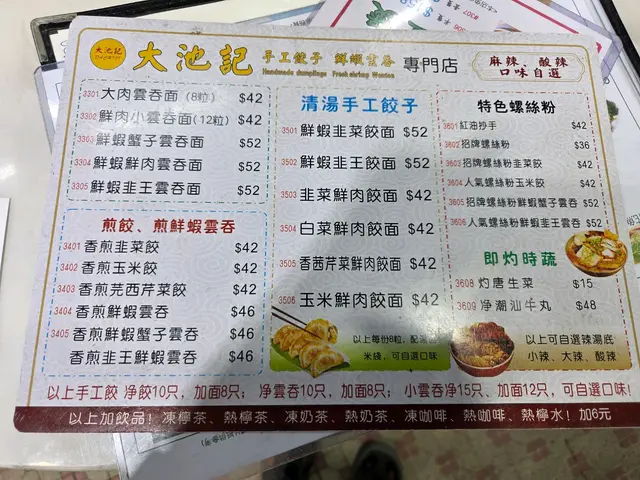 大池記
大池記 手工餃子 鮮蝦雲吞 專門店
Handmade dumplings Fresh shrimp Wonton
麻辣、酸辣
口味自選
3301 大肉雲吞面 (8粒) $42
3302 鮮肉小雲吞面(12粒) $42
3303 鮮蝦蟹子雲吞面 $52
3304 鮮蝦鮮肉雲吞面 $52
3305 鮮蝦韭王雲吞面 $52
煎餃、煎鮮蝦雲吞
3401 香煎韭菜餃 $42
3402 香煎玉米餃 $42
3403 香煎芫西芹菜餃 $42
3404 香煎鮮蝦雲吞 $46
3405 香煎鮮蝦蟹子雲吞 $46
香煎韭王鮮蝦雲吞 $46
清湯手工餃子
3501 鮮蝦韭菜餃面 $52
鮮蝦韭王餃面 $52
3503 韭菜鮮肉餃面 $42
3504 白菜鮮肉餃面 $42
3505 香茜芹菜鮮肉餃面 $42
3506 玉米鮮肉餃面 $42
以上每份8粒，配
米綫，可自選口味
特色螺絲粉
3601 紅油抄手 $42
3602 招牌螺絲粉 $36
3603 招牌螺絲粉韭菜餃 $42
3604 人氣螺絲粉玉米餃 $42
3605 招牌螺絲粉鮮蝦蟹子雲吞 $52
3606 人氣螺絲粉鮮蝦韭王雲吞 $52
即灼時蔬
3608 灼唐生菜 $15
3609 净潮汕牛丸 $48
以上可自選辣湯底
小辣、大辣、酸辣
以上手工餃 净餃10只，加面8只； 净雲吞10只，加面8只； 小雲吞净15只、加面12只，可自選口味!
以上加飲品！凍檸茶、熱檸茶、凍奶茶、熱奶茶、凍咖啡、熱咖啡、熱檸水！加6元